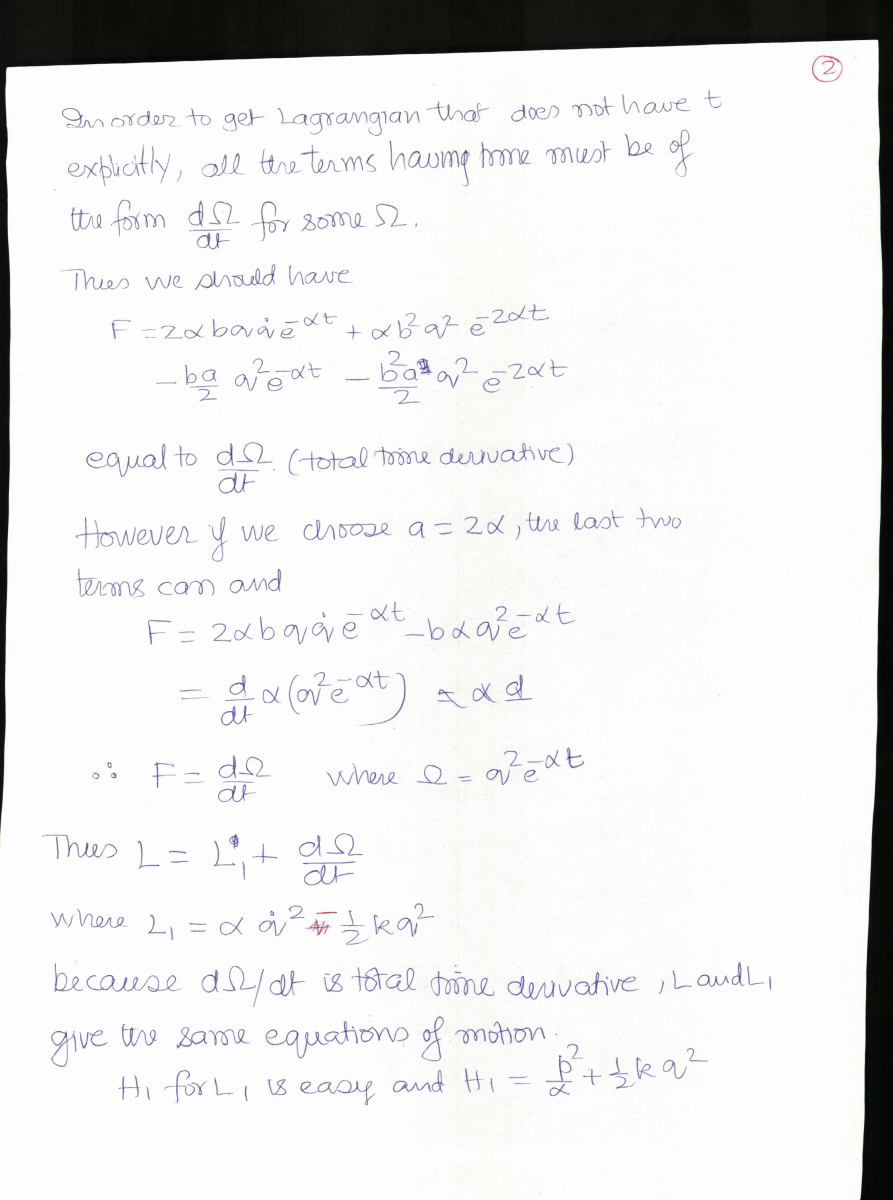 ②
In order to get Lagrangian that does not have t
explicitly, all the terms having time must be of
the form dΩ/dt for some Ω.
Thus we should have
F = 2αbqq̇e^{-αt} + αb²q²e^{-2αt}
- ba/2 q²e^{-αt} - b²a/2 q²e^{-2αt}
equal to dΩ/dt. (total time derivative)
However if we choose a = 2α, the last two
terms can and
F = 2αbqq̇e^{-αt} - bαq²e^{-αt}
= d/dt α(q²e^{-αt}) α d
∴ F = dΩ/dt where Ω = q²e^{-αt}
Thus L = L₁ + dΩ/dt
where L₁ = αq̇² - ½kq²
because dΩ/dt is total time derivative, L and L₁
give the same equations of motion.
H₁ for L₁ is easy and H₁ = p²/α + ½kq²